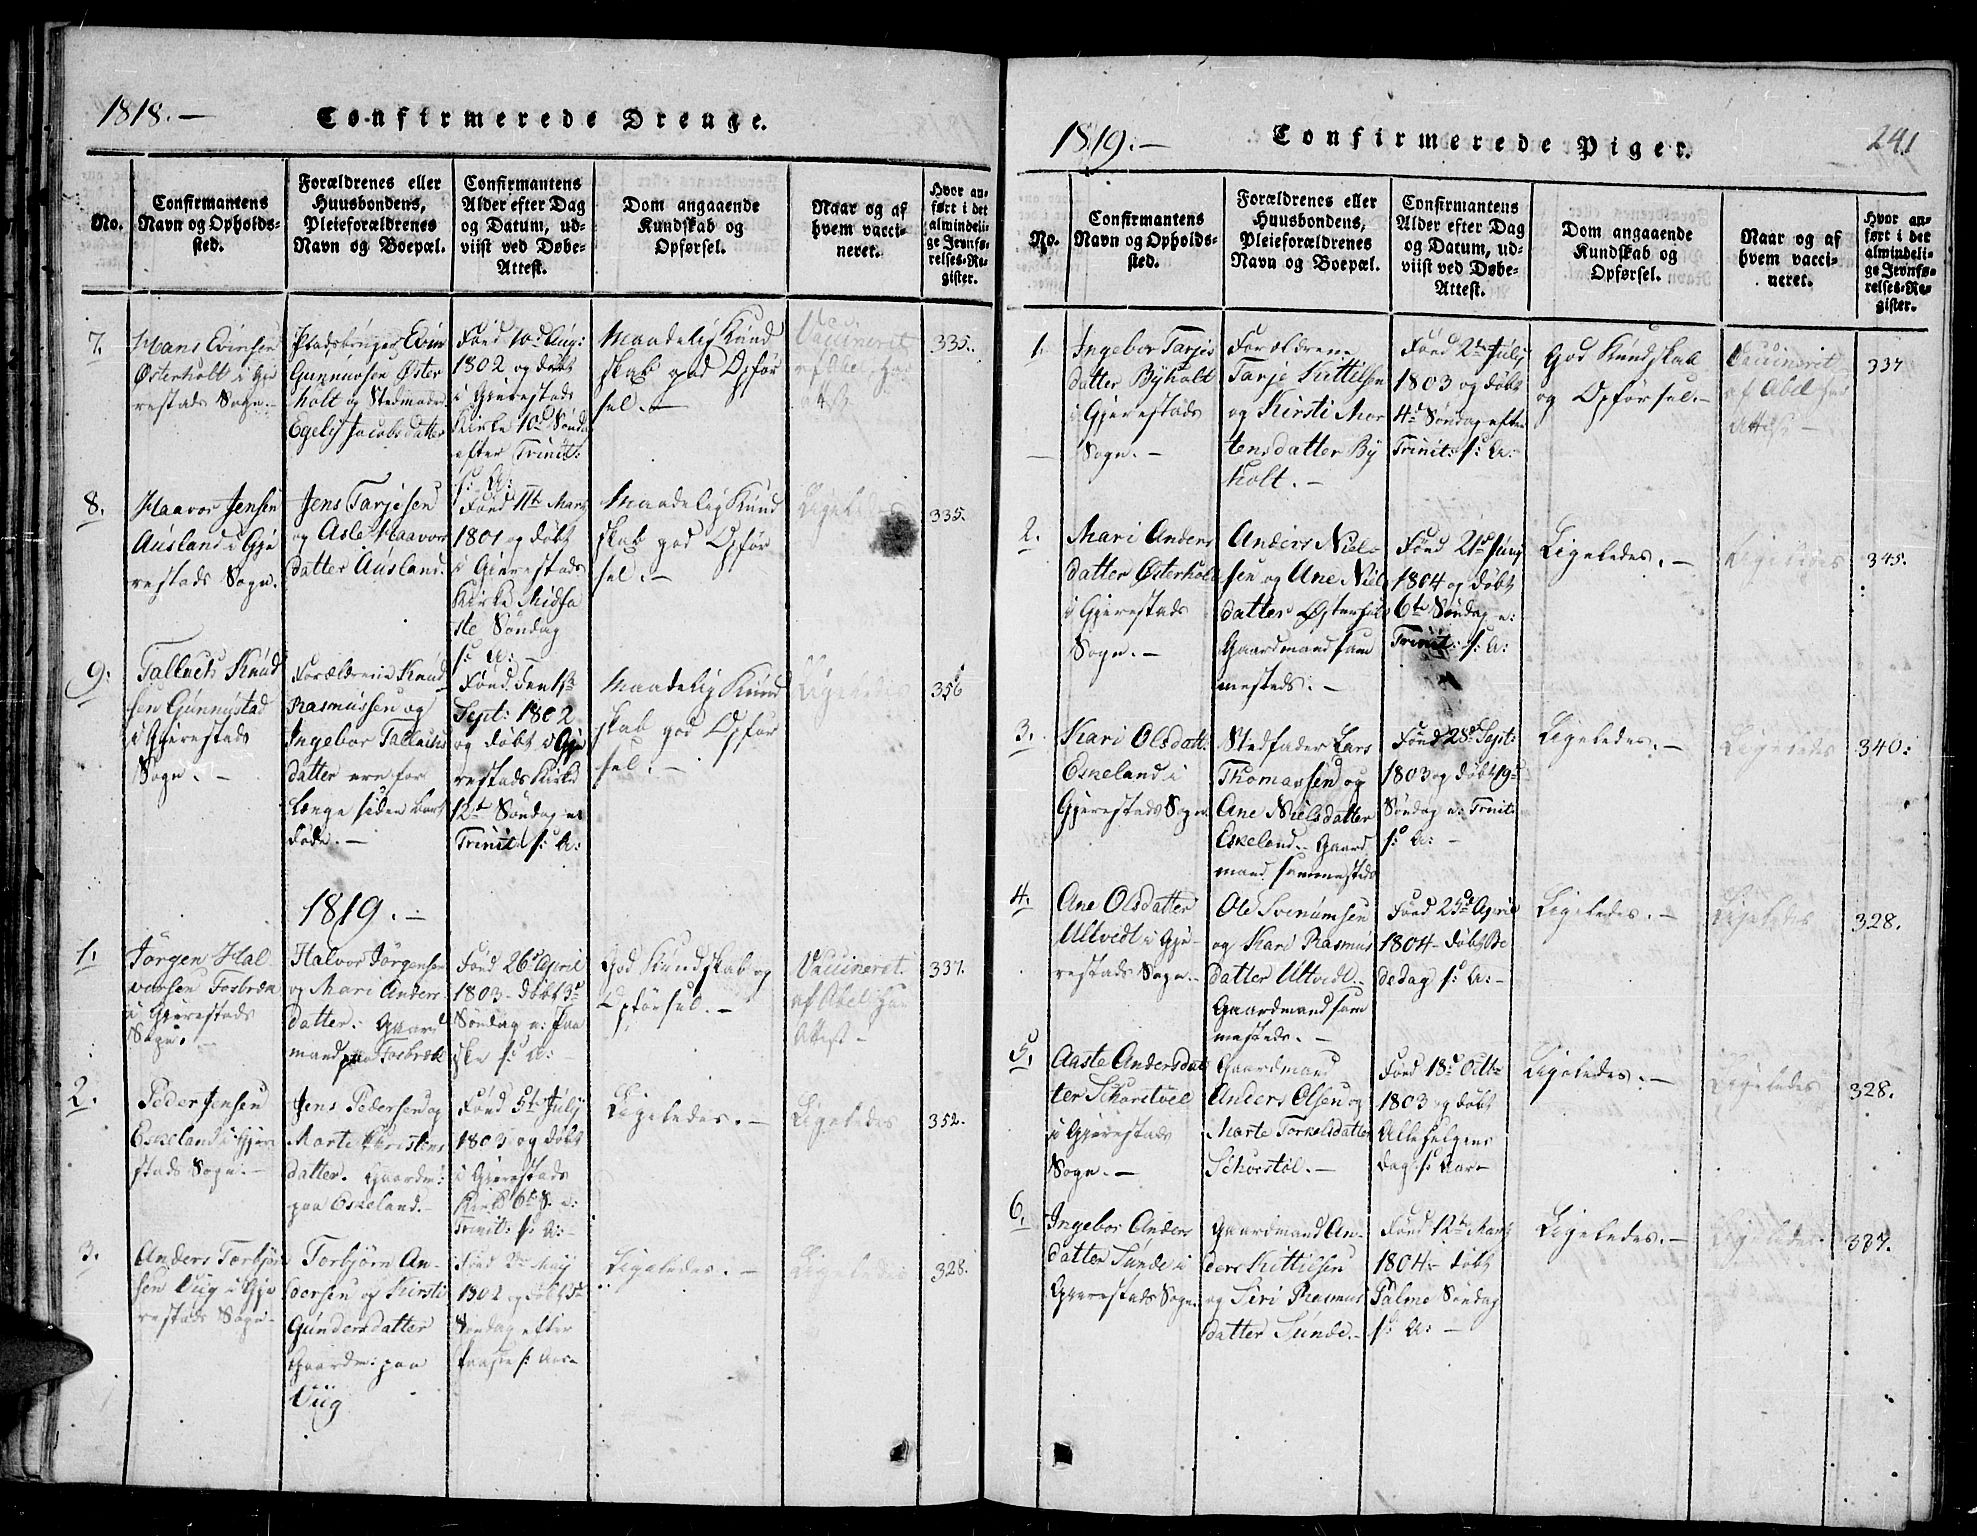 1818.-
Confirmerede Drenge.
No.
Confirmantens
Navn og Opholds-
sted.
Forældrenes eller
Huusbondens,
Pleieforældrenes
Navn og Boepæl.
Confirmantens
Alder efter Dag
og Datum, ud-
viist ved Døbe-
Attest.
Dom angaaende
Kundskab og
Opførsel.
Naar og af
hvem vacci-
neret.
Hvor an-
ført i det
almindeli-
ge Jevnfø-
relses-Re-
gister.
7.
Hans Evinsen
Østerholt i Gje
restads Sogn.-
Pladsbruger Evin
Gunnursen Øster
holt og Stedmoder
Egelef Jacobsdatter
Fød 10d Aug:
1802 og døbt
i Gjerestads
Kirke 10d Sønd
efter Trinit:
s: A:
Maadelig Kund
skab god Opför
sel.-
Vaccineret
af Abel
Attest
335.
8.
Haavor Jensen
Ausland i Gje
restads Sogn.
Jens Tarjesen
og Asle Haavor
datter Ausland.
Fød 11te Marts
1801 og døbt
i Gjerestads
Kirke Midfa
ste Søndag
s: A: -
Maadelig Kund
skab god Opför
sel.-
Ligeledes
335.
9.
Tallach Knud
sen Gunnystad
i Gjerestads
Sogn.-
Forældrene Knud
Rasmussen og
Ingebor Tallachs
datter ere for
længe siden bort
døde.-
Fød den 1te
Sept: 1802
og døbt i Gje
restads Kirke
12te Søndag e:
Trinit: s: A:
Maadelig Kund
skab god Opför
sel.-
Ligeledes
356
1819.-
1.
Jörgen Hal
vorsen Fosbræk
i Gjerestads
Sogn.-
Halvor Jörgensen
og Mari Anders
datter. Gaard
mand paa Fosbræk
Fød 26d April
1803- døbt 3d
Søndag e: Paa
ske s: A: -
God Kundskab og
Opförsel.-
Vaccineret.
af Abel
Attest-
337.
2.
Peder Jensen
Eskeland i Gjere
stads Sogn.-
Jens Pedersen og
Marte Christens
datter. Gaardm:
paa Eskeland.-
Fød 5te July
1803 og døbt
i Gjerestads
Kirke 6te S. e:
Trinit: s: A:-
Ligeledes.-
Ligeledes
352.
3.
Anders Torbjörn
sen Viig i Gje
restads Sogn-
Torbjörn An-
dersen og Kirsti
Gundersdatter
Gaardm: paa
Viig
Fød 3de Maij
1802 og døbt 3d
Søndag efter
Paaske s: Aar
Ligeledes.-
Ligeledes
328.
1819.-
Confirmerede Piger.
241
No.
Confirmantens
Navn og Opholds-
sted.
Forældrenes eller
Huusbondens,
Pleieforældrenes
Navn og Boepæl.
Confirmantens
Alder efter Dag
og Datum, ud-
viist ved Døbe-
Attest.
Dom angaaende
Kundskab og
Opførsel.
Naar og af
hvem vacci-
neret.
Hvor an-
ført i det
almindeli-
ge Jevnfø-
relses-Re-
gister.
1.
Ingebor Tarjis
datter Byholt
i Gjerestads
Sogn.-
Forældrene
Tarje Kittilsen
og Kirsti Mor
tensdatter By
holt.-
Fød 2de July
1803 og døbt
4d Søndag efter
Trinit: s: A:-
God Kundskab
og Opförsel.-
Vaccineret
af Abel
Attest-
337
2.
Mari Anders
datter Østerholt
i Gjerestads
Sogn.-
Anders Niel-
sen og Ane Niels
datter Østerholt
Gaardmand sam
mesteds.-
Fød 21d Juny
1804 og døbt
6te Søndag e:
Trinit: s: A:
Ligeledes.-
Ligeledes
345.
3.
Kari Olsdatt:
Eskeland i
Gjerestads Sogn
Stedfader Lars
Thomassen og
Ane Nielsdatter
Eskeland.- Gaard
mand sammesteds
Fød 28d Sept:
1803 og døbt 19d
Søndag e: Trinit:
s: A: -
Ligeledes.-
Ligeledes
340.
4.
Ane Olsdatter
Ultvedt i Gje-
restads Sogn.-
Ole Svenumsen
og Kari Rasmus
datter Ultvedt.-
Gaardmand sam
mesteds.-
Fød 25de April
1804- døbt Be
dedag s: A:-
Ligeledes.-
Ligeledes
328.
5.
Aaste Andersdat
ter Schorstöel
i Gjerestads
Sogn.-
Gaardmand
Anders Olsen og
Marte Torkelsdatter
Schorstöl.-
Fød 18d Octbr
1803 og døbt
Allehelgens
dag s: Aar-
Ligeledes.-
Ligeledes
328.
6.
Ingebor Anders
datter Sunde i
Gjerestads Sogn
Gaardmand An-
ders Kittilsen
og Siri Rasmus
datter Sunde.-
Fød 12te Marts
1804- døbt
Palme Søndag
s: A: -
Ligeledes.-
Ligeledes.
337.